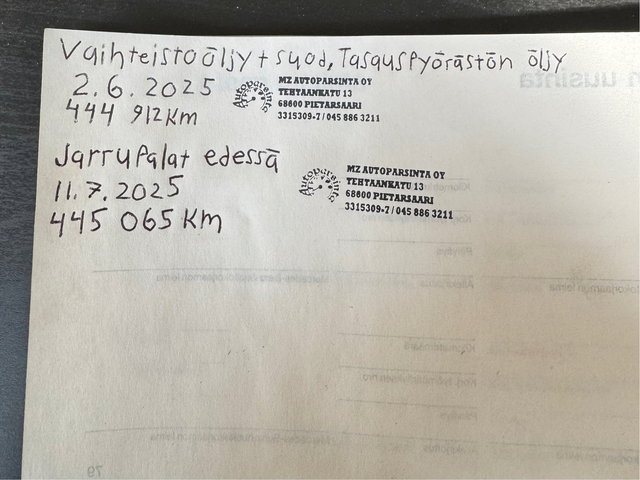 Vaihteistoöljy + suod, Tasauspyörästön öljy
2.6.2025
444 912 km
MZ AUTOPARSINTA OY
TEHTAANKATU 13
68600 PIETARSAARI
3315309-7 / 045 886 3211
Jarrupalat edessä
11.7.2025
445 065 km
MZ AUTOPARSINTA OY
TEHTAANKATU 13
68600 PIETARSAARI
3315309-7 / 045 886 3211
79